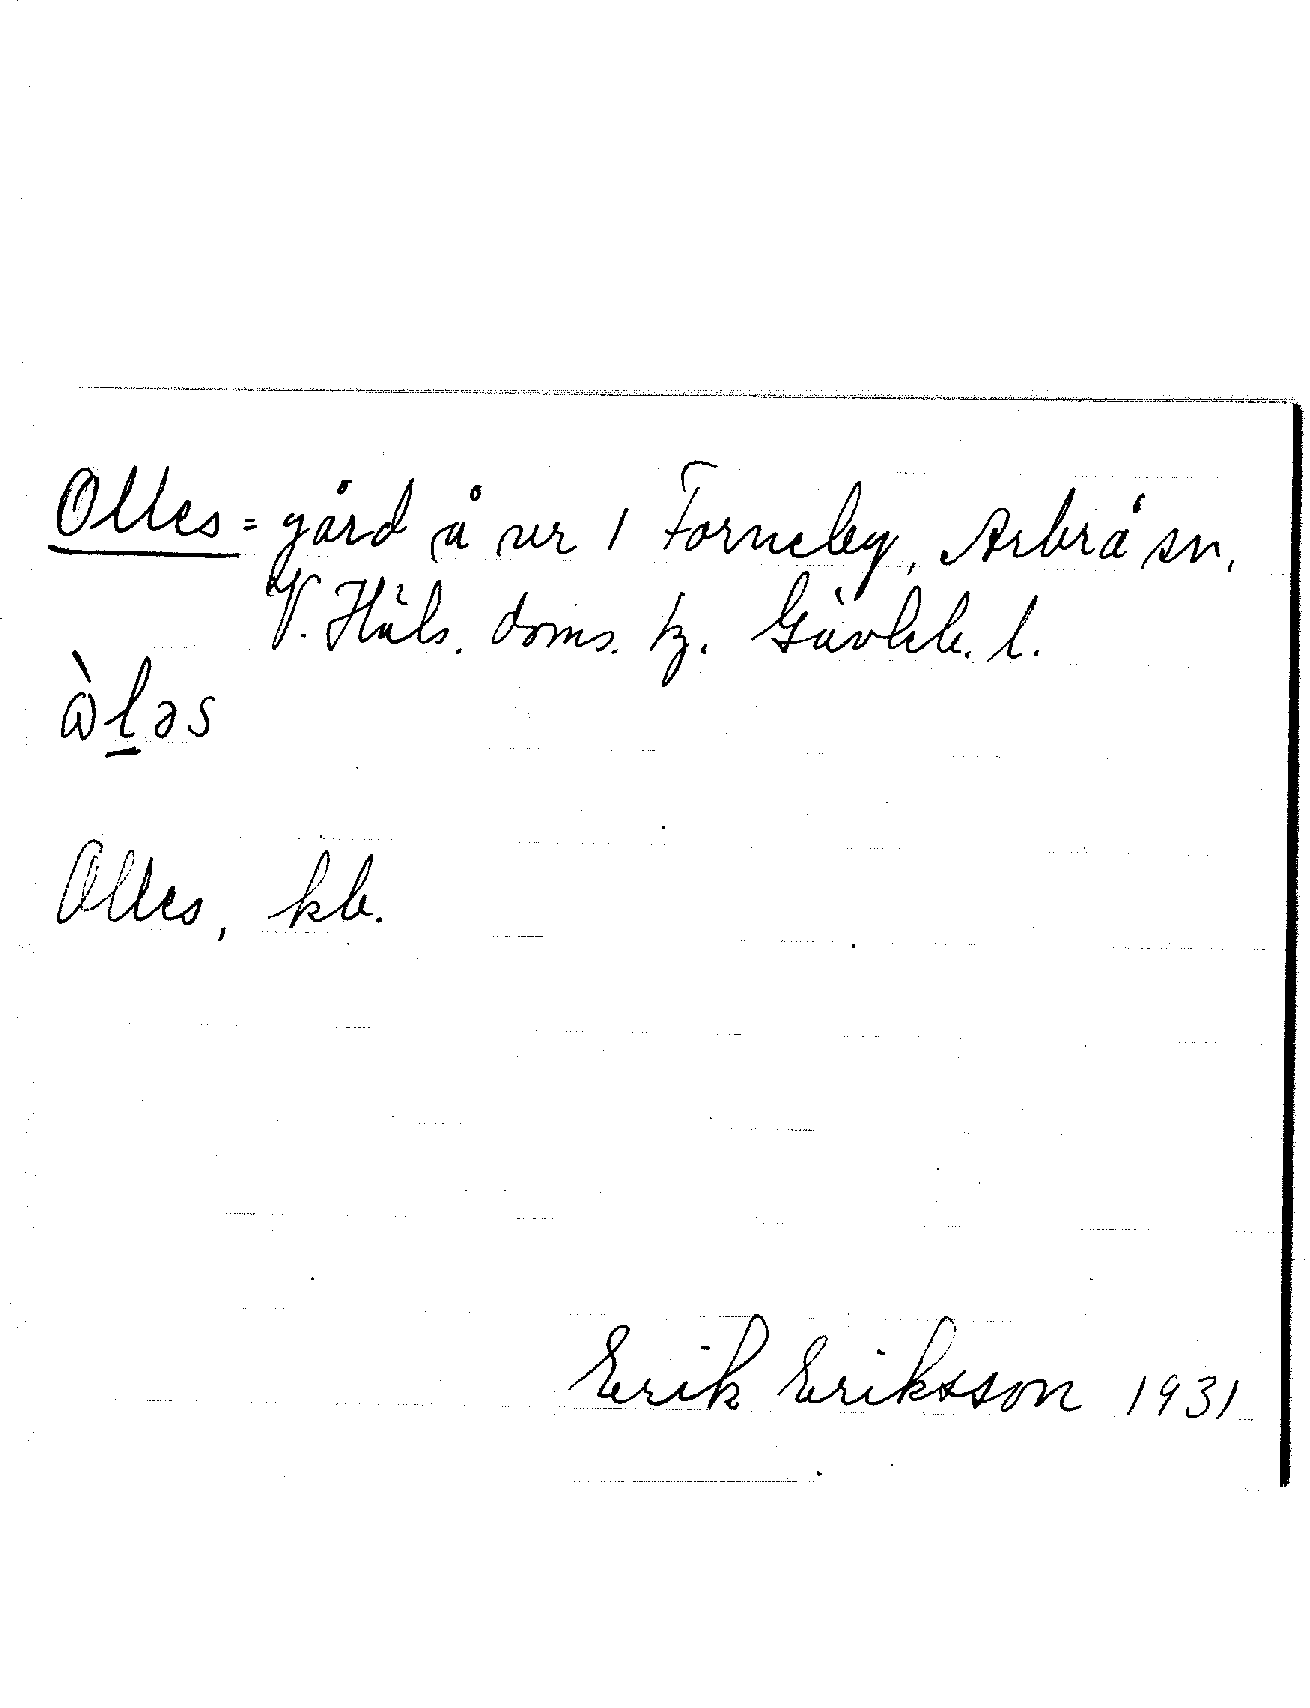 Olles = gård å nr 1 Forneby, Arbrå sn,
V. Häls. doms. tg. Gävleb. l.
àl̲əs
Olles, kb.
Erik Eriksson 1931